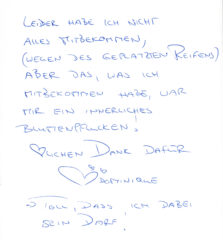 LEIDER HABE ICH NICHT
ALLES MITBEKOMMEN,
(WEGEN DES GEPLATZTEN REIFENS)
ABER DAS, WAS ICH
MITBEKOMMEN HABE, WAR
MIR EIN INNERLICHES
BLUMENPFLÜCKEN!
♡LICHEN DANK DAFÜR
DOMINIQUE
TOLL, DASS ICH DABEI
SEIN DARF.